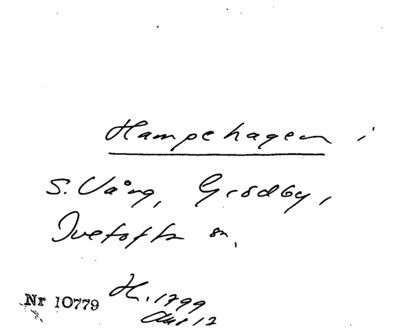 Hampehagen i
S. Vång, Grödby,
Ivetofta sn.
Nr 10779 H. 1799